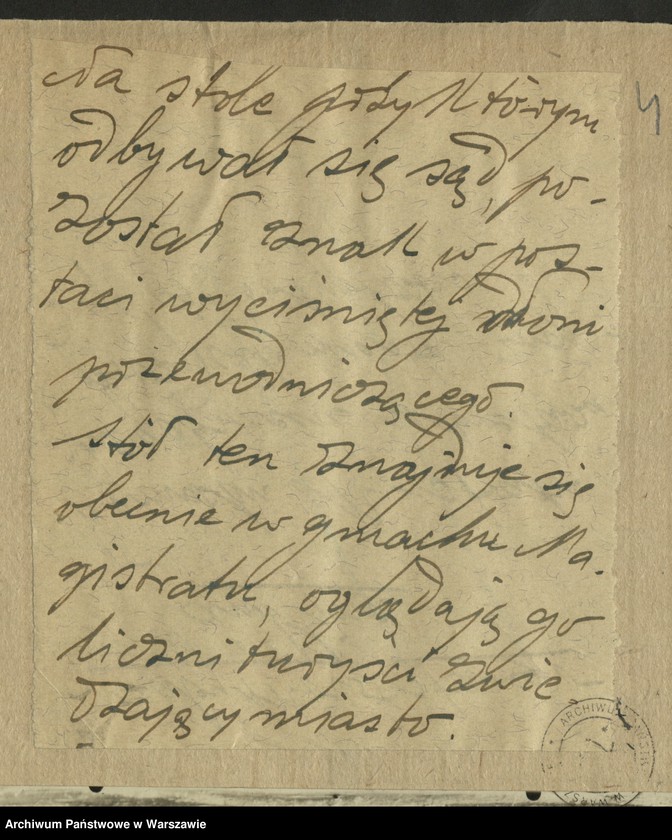 Na stole przy którym
odbywał się sąd, po-
został znak w pos-
taci wyciśniętej dłoni
przewodniczącego.
Stół ten znajduje się
obecnie w gmachu Ma-
gistratu, oglądają go
liczni turyści zwie
dzający miasto.
4
ARCHIWUM
Archiwum Państwowe w Warszawie